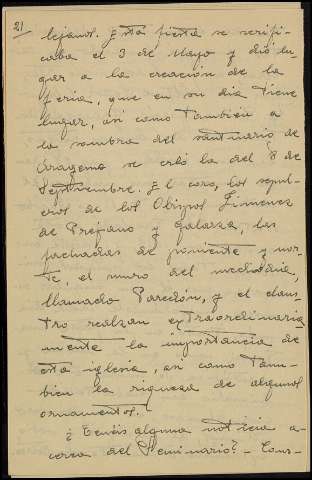 21
lejanos. Esta fiesta se verifi-
caba el 3 de Mayo y dió lu-
gar a la creación de la
feria, que en su día tiene
lugar, así como también a
la sombra del santuario de
se creó la del 8 de
Septiembre. El coro, los sepul-
cros de los Obispos Ximenez
de Prefano y Galarza, las
fachadas de poniente y nor-
te, el muro del mediodía,
llamado Paredón, y el claus-
tro realzan extraordinaria
mente la importancia de
esta iglesia, así como Tam-
bien la riqueza de algunos
ornamentos.
¿Teneis alguna noticia a-
cerca del Seminario? - Cons-